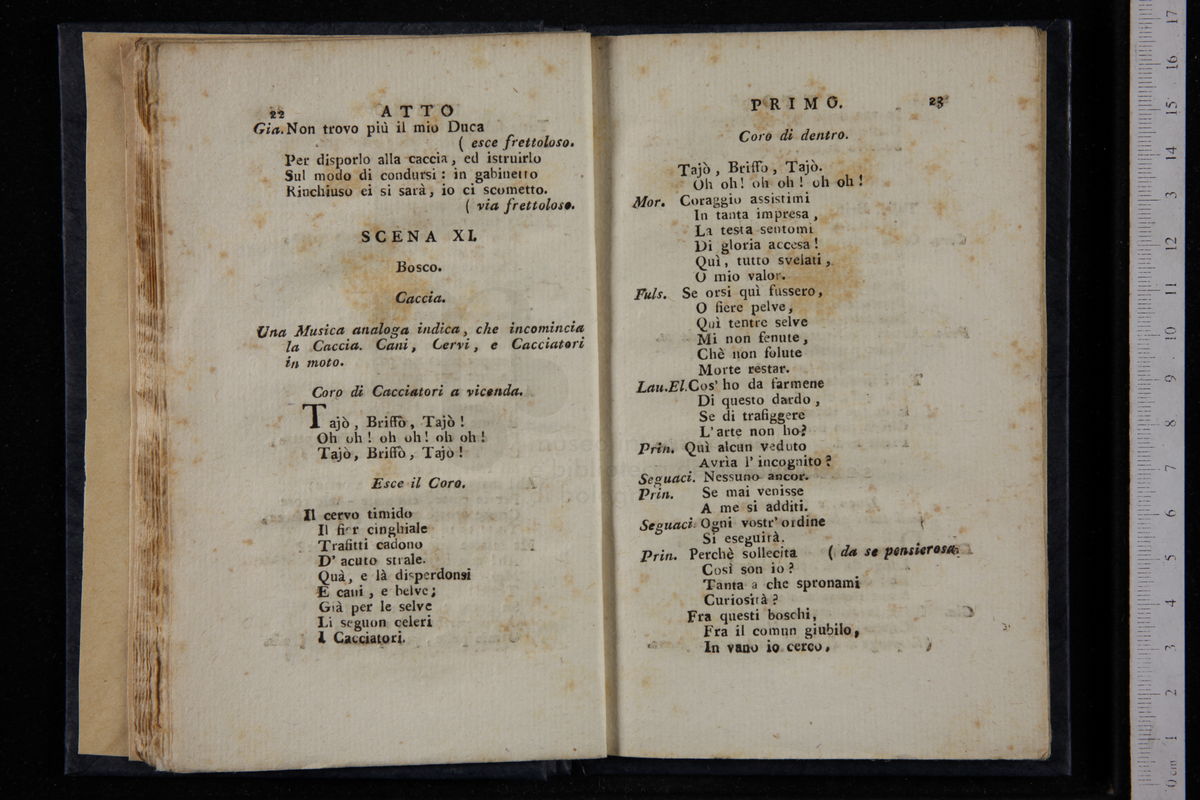 22 ATTO
Gia. Non trovo più il mio Duca
( esce frettoloso.
Per disporlo alla caccia, ed istruirlo
Sul modo di condursi: in gabinetto
Rinchiuso ei si sarà, io ci scometto.
( via frettoloso.
SCENA XI.
Bosco.
Caccia.
Una Musica analoga indica, che incomincia
la Caccia. Cani, Cervi, e Cacciatori
in moto.
Coro di Cacciatori a vicenda.
Tajò, Briffò, Tajò!
Oh oh! oh oh! oh oh!
Tajò, Briffò, Tajò!
Esce il Coro.
Il cervo timido
Il fier cinghiale
Trafitti cadono
D' acuto strale.
Quà, e là disperdonsi
E cani, e belve;
Già per le selve
Li seguon celeri
I Cacciatori.
PRIMO. 23
Coro di dentro.
Tajò, Briffo, Tajò.
Oh oh! oh oh! oh oh!
Mor. Coraggio assistimi
In tanta impresa,
La testa sentomi
Di gloria accesa!
Quì, tutto svelati,
O mio valor.
Fuls. Se orsi quì fussero,
O fiere pelve,
Quì tentre selve
Mi non fenute,
Chè non folute
Morte restar.
Lau.El. Cos' ho da farmene
Di questo dardo,
Se di trafiggere
L' arte non ho?
Prin. Quì alcun veduto
Avrìa l' incognito?
Seguaci. Nessuno ancor.
Prin. Se mai venisse
A me si additi.
Seguaci. Ogni vostr' ordine
Si eseguirà.
Prin. Perchè sollecita ( da se pensierosa.
Così son io?
Tanta a che spronami
Curiosità?
Fra questi boschi,
Fra il comun giubilo,
In vano io cerco,
0 cm 1 2 3 4 5 6 7 8 9 10 11 12 13 14 15 16 17